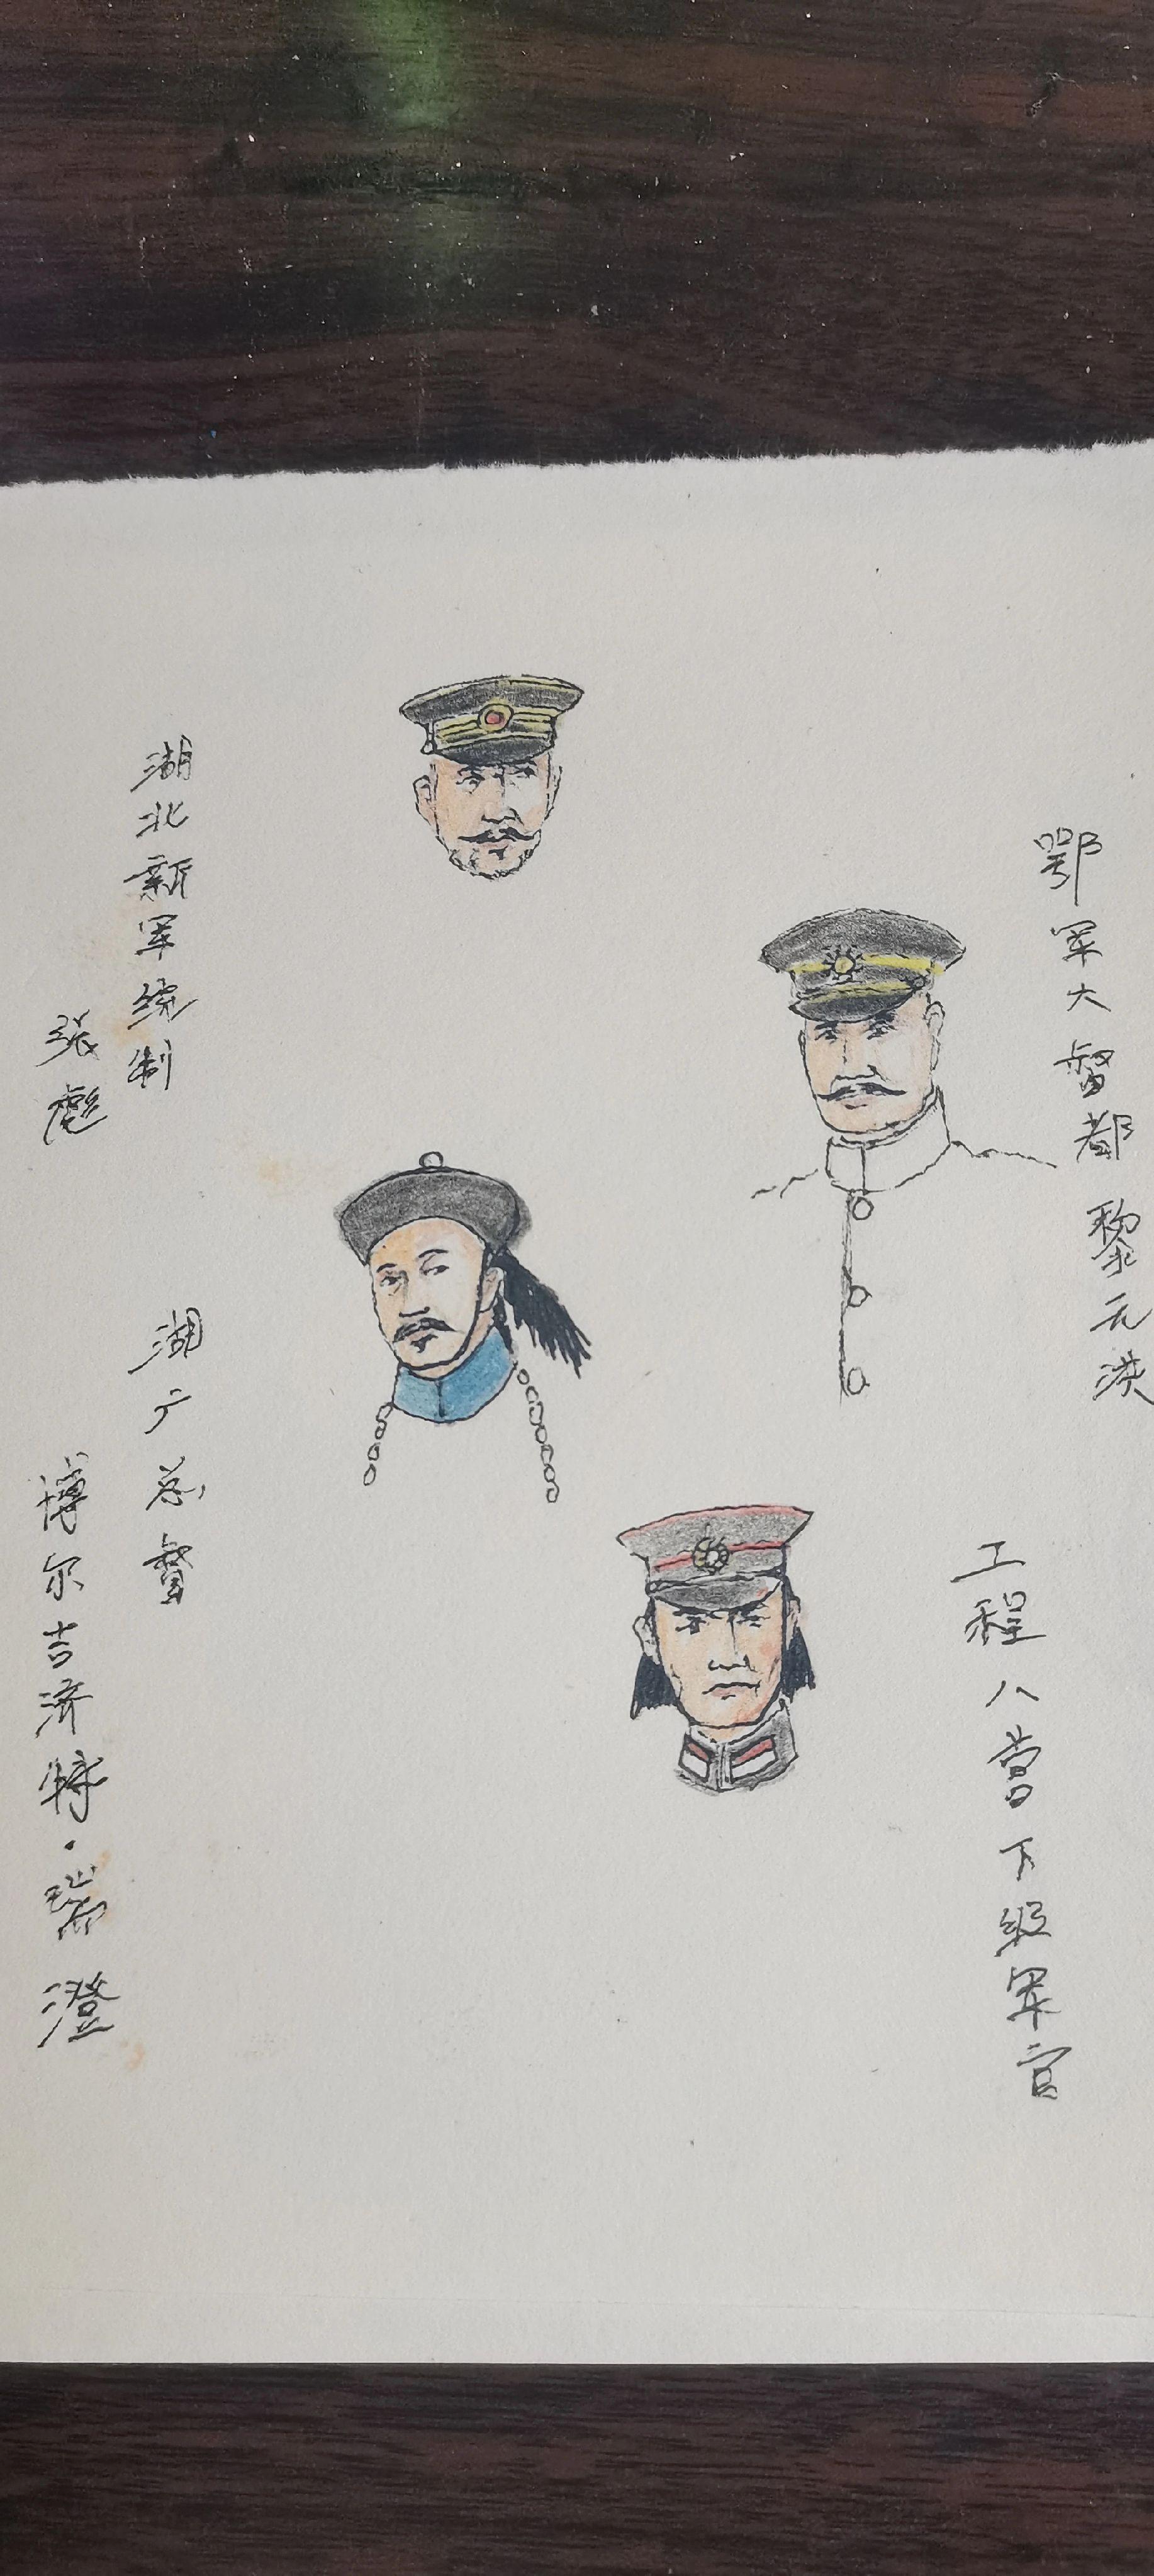 鄂军大督都 黎元洪
工程八营下级军官
湖北新军统制
张彪
湖广总督
博尔吉济特·瑞澄